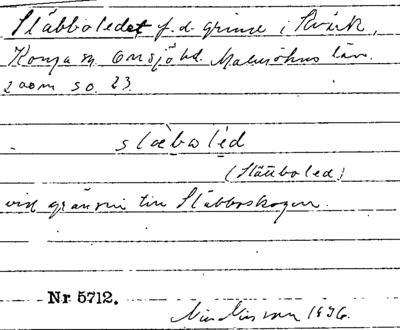 Släbboledet f. d. grind i Stvik,
Konga sn. Onsjö hd. Malmöhus län.
zoom so. 23.
slæbalèd
(Slättboled)
vid gränsen till Släbbskogen.
Nr 5712.
1936.